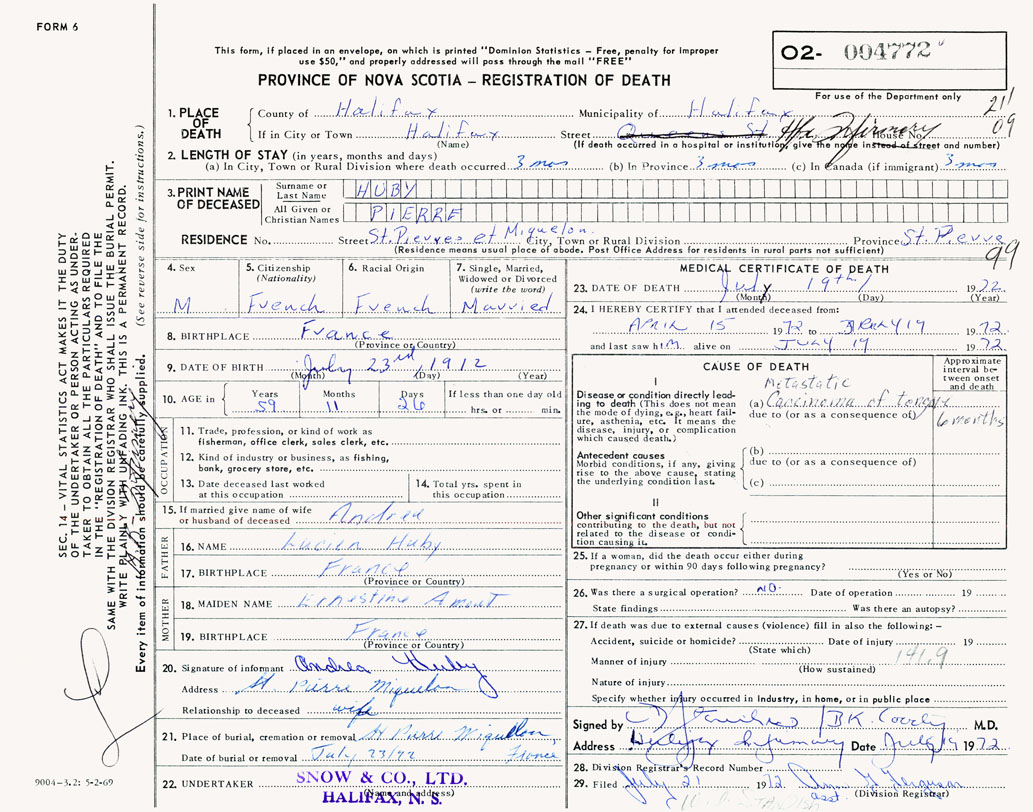 FORM 6
This form, if placed in an envelope, on which is printed "Dominion Statistics – Free, penalty for improper
use $50," and properly addressed will pass through the mail "FREE"
PROVINCE OF NOVA SCOTIA – REGISTRATION OF DEATH
02- 004772
For use of the Department only
211
09
1. PLACE OF DEATH
County of Halifax Municipality of Halifax
If in City or Town Halifax Street Queens St Hfx Infirmary House No.
(Name) (If death occurred in a hospital or institution, give the name instead of street and number)
2. LENGTH OF STAY (in years, months and days)
(a) In City, Town or Rural Division where death occurred 3 mos (b) In Province 3 mos (c) In Canada (if immigrant) 3 mos
3. PRINT NAME OF DECEASED
Surname or Last Name HUBY
All Given or Christian Names PIERRE
RESIDENCE No. Street St. Pierres et Miquelon City, Town or Rural Division Province St. Pierre
(Residence means usual place of abode. Post Office Address for residents in rural parts not sufficient)
99
4. Sex M
5. Citizenship (Nationality) French
6. Racial Origin French
7. Single, Married, Widowed or Divorced (write the word) Married
8. BIRTHPLACE France
(Province or Country)
9. DATE OF BIRTH July 23rd, 1912
(Month) (Day) (Year)
10. AGE in Years 59 Months 11 Days 26 If less than one day old hrs. or min.
OCCUPATION
11. Trade, profession, or kind of work as
fisherman, office clerk, sales clerk, etc.
12. Kind of industry or business, as fishing,
bank, grocery store, etc.
13. Date deceased last worked
at this occupation
14. Total yrs. spent in
this occupation
15. If married give name of wife
or husband of deceased Andrea
FATHER
16. NAME Lucien Huby
17. BIRTHPLACE France
(Province or Country)
MOTHER
18. MAIDEN NAME Ernestine
19. BIRTHPLACE France
(Province or Country)
20. Signature of informant Andrea Huby
Address St Pierre Miquelon
Relationship to deceased wife
21. Place of burial, cremation or removal St Pierre Miquelon, France
Date of burial or removal July 23/72
22. UNDERTAKER SNOW & CO., LTD.
(Name and address)
HALIFAX, N. S.
MEDICAL CERTIFICATE OF DEATH
23. DATE OF DEATH July 19th 1972
(Month) (Day) (Year)
24. I HEREBY CERTIFY that I attended deceased from
APRIL 15 1972 to JULY 19 1972
and last saw him alive on JULY 19 1972
CAUSE OF DEATH
Approximate interval between onset and death
I
Disease or condition directly leading to death (This does not mean
the mode of dying, e.g., heart failure, asthenia, etc. It means the
disease, injury, or complication
which caused death.)
Metastatic
(a) Carcinoma of tongue
due to (or as a consequence of)
6 months
Antecedent causes
Morbid conditions, if any, giving
rise to the above cause, stating
the underlying condition last.
(b)
due to (or as a consequence of)
(c)
II
Other significant conditions
contributing to the death, but not
related to the disease or condition causing it.
25. If a woman, did the death occur either during
pregnancy or within 90 days following pregnancy?
(Yes or No)
26. Was there a surgical operation? NO. Date of operation 19
State findings Was there an autopsy?
27. If death was due to external causes (violence) fill in also the following: –
Accident, suicide or homicide? Date of injury 19
(State which) 141.9
Manner of injury
(How sustained)
Nature of injury
Specify whether injury occurred in Industry, in home, or in public place
Signed by M.D.
Address Halifax Infirmary Date July 19 1972
28. Division Registrar's Record Number
29. Filed July 21 1972
asst. (Division Registrar)
SEC. 14 – VITAL STATISTICS ACT MAKES IT THE DUTY
OF THE UNDERTAKER OR PERSON ACTING AS UNDERTAKER TO OBTAIN ALL THE PARTICULARS REQUIRED
IN THE "REGISTRATION OF DEATH" AND TO FILE THE
SAME WITH THE DIVISION REGISTRAR WHO SHALL ISSUE THE BURIAL PERMIT.
WRITE PLAINLY WITH UNFADING INK. THIS IS A PERMANENT RECORD.
Every item of information should be carefully supplied. (See reverse side for instructions.)
9004–3.2: 5-2-69